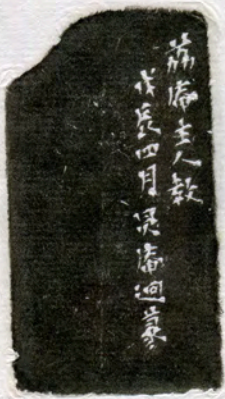 荔庵主人教
戊辰四月庵迥